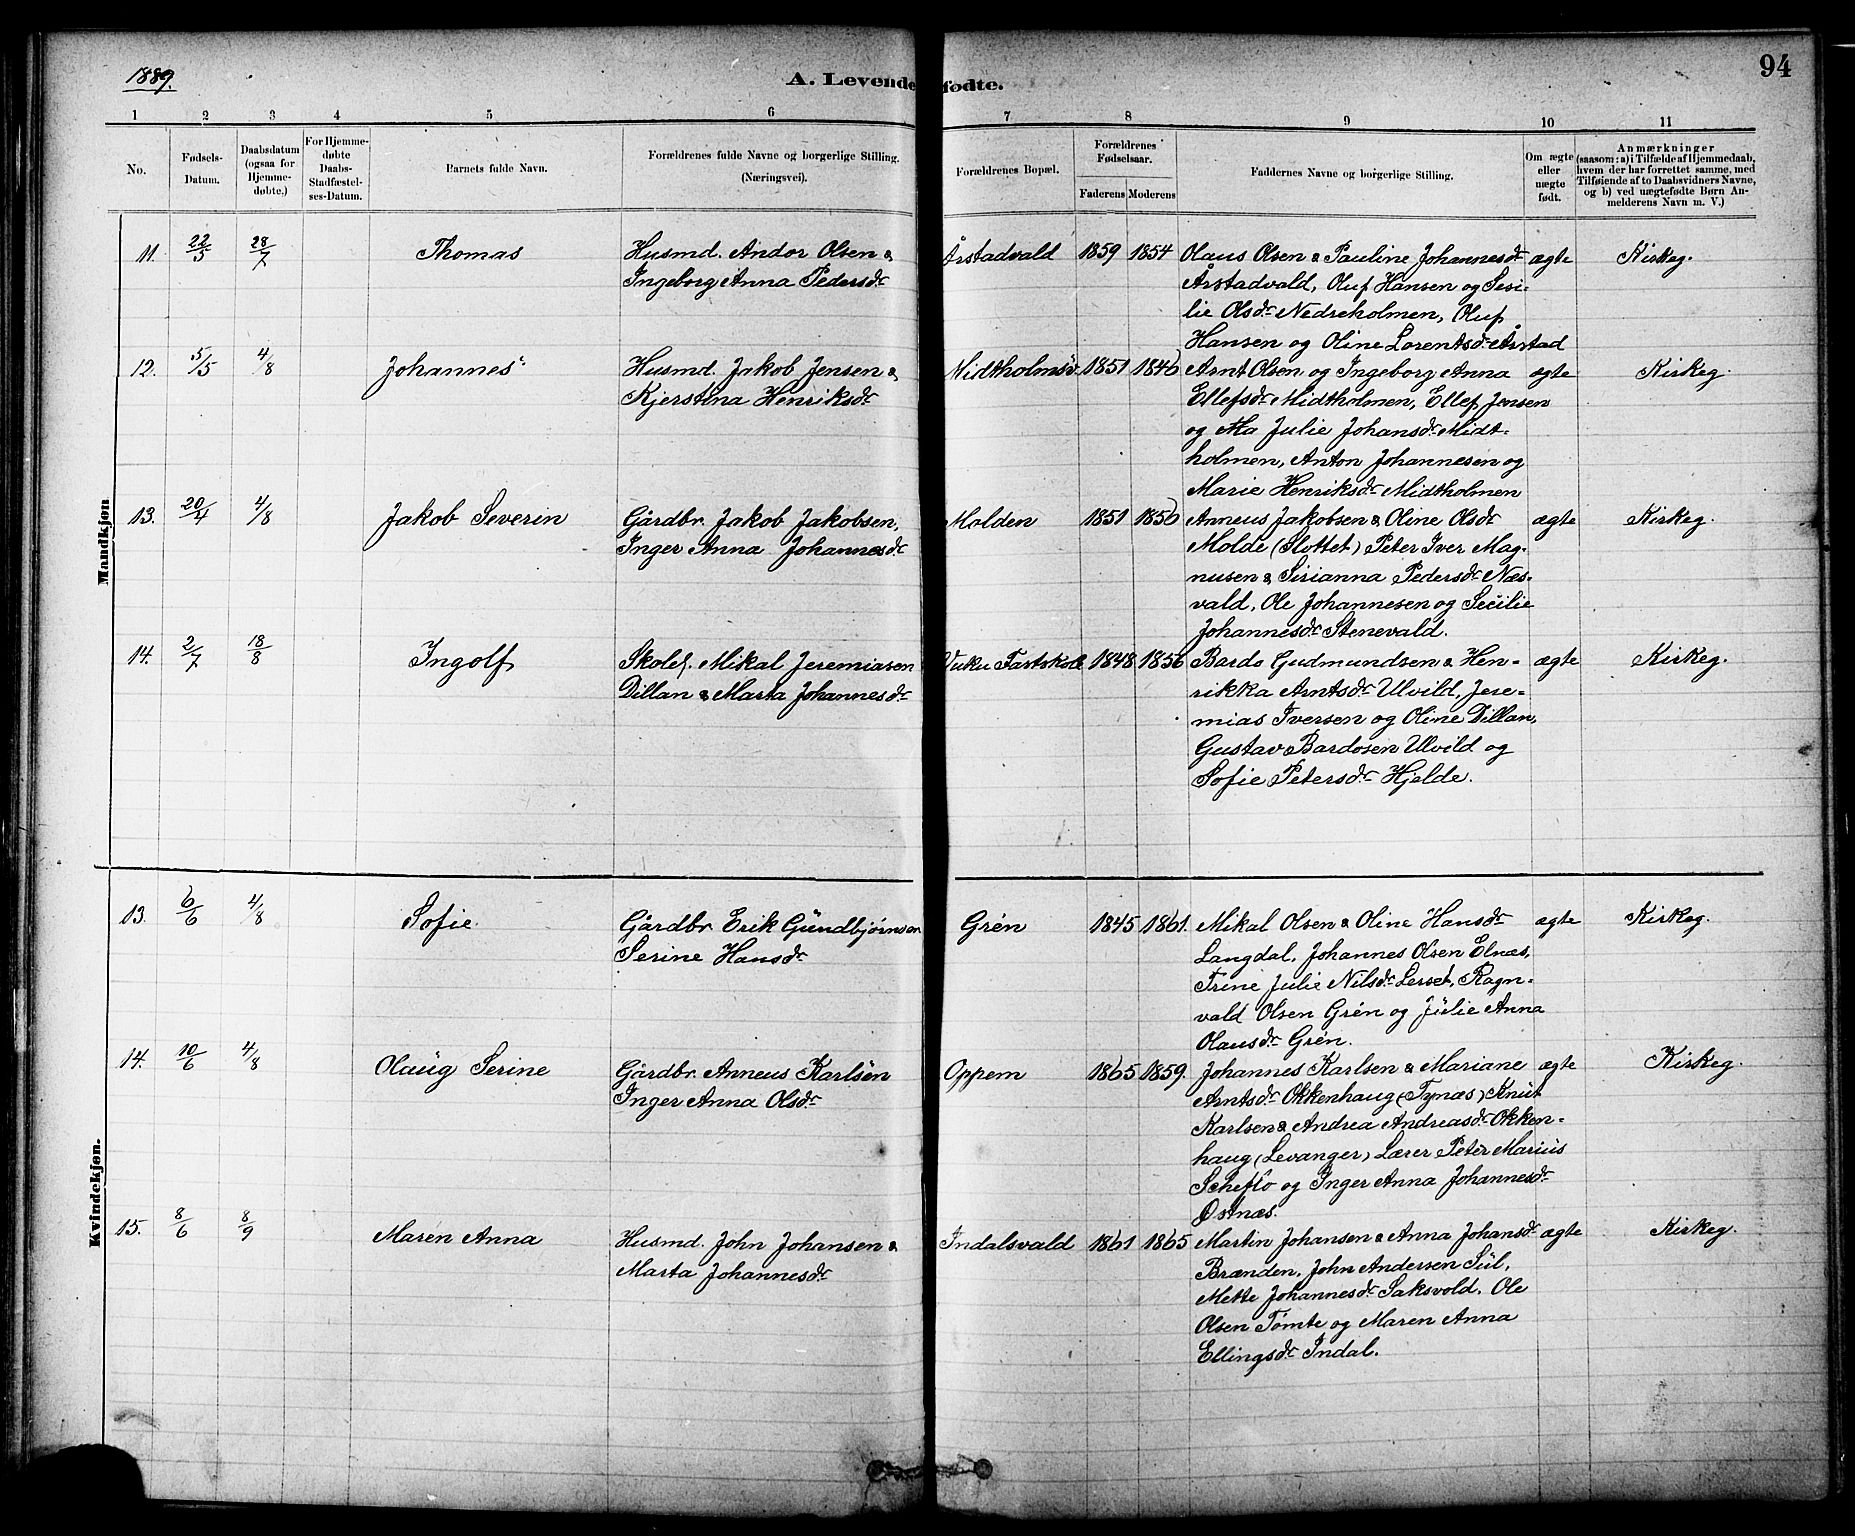 1889.
A. Levende fødte.
94
1 2 3 4 5 6 7 8 9 10 11
No.
Fødsels-
Datum.
Daabsdatum
(ogsaa for
Hjemme-
døbte.)
For Hjemme-
døbte
Daabs-
Stadfæstel-
ses-Datum.
Barnets fulde Navn.
Forældrenes fulde Navne og borgerlige Stilling.
(Næringsvei).
Forældrenes Bopæl.
Forældrenes
Fødselsaar.
Faderens Moderens
Faddernes Navne og borgerlige Stilling.
Om ægte
eller
uægte
født.
Anmærkninger
(saasom: a) i Tilfælde af Hjemmedaab,
hvem der har forrettet samme, med
Tilføiende af to Daabsvidners Navne,
og b) ved uægtefødte Børn An-
melderens Navn m. V.)
Mandkjøn
11. 22/5 28/7 Thomas Husmd. Andor Olsen & Årstadvald 1859 1854 Olaus Olsen & Pauline Johannesdr ægte Kirkeg.
Ingeborg Anna Pedersdr Årstadvald, Oluf Hansen og Sesi-
lie Olsdr Nedreholmen, Oluf
Hansen og Oline Lorentsdr Årstad
12. 5/5 4/8 Johannes Husmd. Jakob Jensen & Midtholmsv 1851 1846 Arnt Olsen og Ingeborg Anna ægte Kirkeg.
Kjerstina Henriksdr Ellefsdr Midtholmen, Ellef Jensen
og Ma Julie Johansdr Midt-
holmen, Anton Johannesen og
Marie Henriksdr Midtholmen
13. 20/4 4/8 Jakob Severin Gårdbr. Jakob Jakobsen, Molden 1851 1856 Anneus Jakobsen & Oline Olsdr ægte Kirkeg.
Inger Anna Johannesdr Molde (Slottet) Peter Iver Mag-
nusen & Sirianna Pedersdr Næs-
vald, Ole Johannesen og Secilie
Johannesdr Stenevald.
14. 2/7 18/8 Ingolf Skolel. Mikal Jeremiasen Vuku Fastskole 1848 1856 Bardo Gudmundsen & Hen- ægte Kirkeg.
Dillan & Marta Johannesdr rikka Arntsdr Ulvild, Jere-
mias Iversen og Oline Dillan,
Gustav Bardosen Ulvild og
Sofie Petersdr Hjelde.
Kvindekjøn.
13. 6/6 4/8 Sofie Gårdbr Erik Gundbjørnsen Grén 1845 1861. Mikal Olsen & Oline Hansdr ægte Kirkeg.
Serine Hansdr Langdal, Johannes Olsen Elnæs,
Trine Julie Nilsdr Lerset, Ragn-
vald Olsen Grén og Julie Anna
Olausdr Grén.
14. 10/6 4/8 Olaug Serine Gårdbr. Anneus Karlsen Oppem 1865 1859. Johannes Karlsen & Mariane ægte Kirkeg.
Inger Anna Olsdr Arntsdr Okkenhaug (Tynæs) Knut
Karlsen & Andrea Andreasdr Okken-
haug (Levanger) Lærer Peter Marius
Scheflo og Inger Anna Johannesdr
Østnæs.
15. 8/6 8/9 Maren Anna Husmd. John Johansen & Indalsvald 1861 1865 Martin Johansen & Anna Johansdr ægte Kirkeg.
Marta Johannesdr Brænden, John Andersen Sul,
Mette Johannesdr Saksvold. Ole
Olsen Tømte og Maren Anna
Ellingsdr Indal.